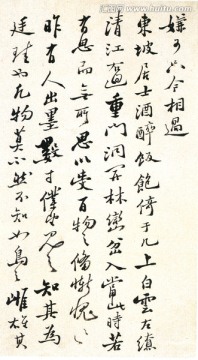 嫌可只今相過
東坡居士酒醉飯飽倚于几上白雲左繚
清江右洄重門洞開林巒坌入當此時若
有思而無所思以受百物之備慚愧〻
昨有人出墨數寸僕望見之知其為
廷珪也凡物莫不然不知如烏之雌雄其